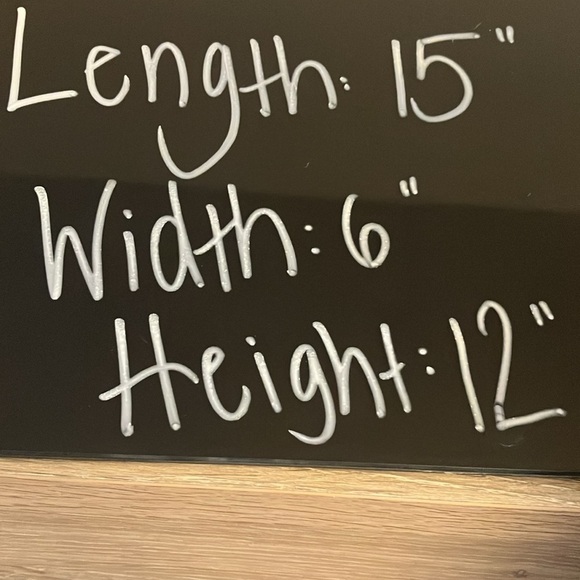 Length: 15"
Width: 6"
Height: 12"